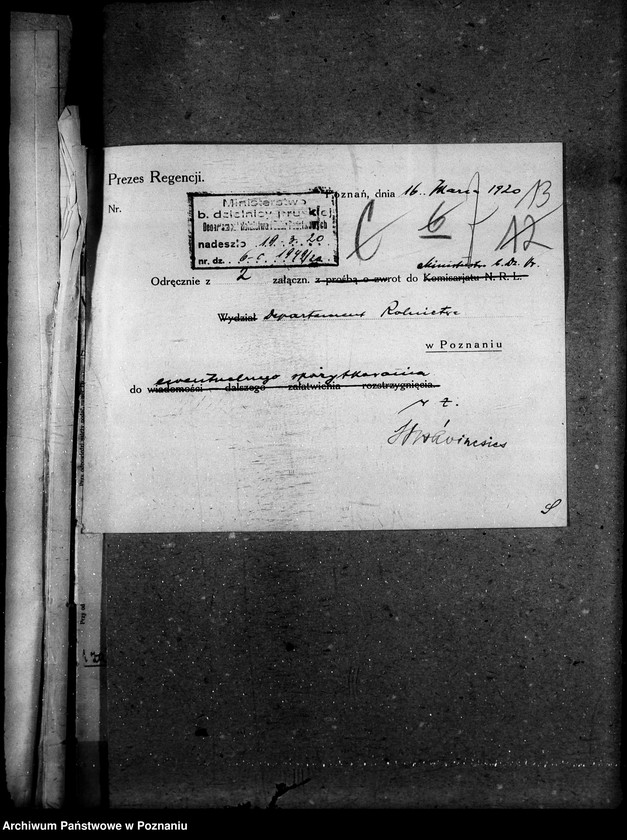 Prezes Regencji.
Poznań, dnia 16. Marca 1920
13
Nr.
Ministerstwo
b. dzielnicy pruskiej
nadeszło 19. 3. 20
nr. dz. 6. c.
C 6
12
Ministerstw b. Dz. Pr.
Odręcznie z 2 załączn. z prośbą o zwrot do Komisarjatu N. R. L.
Wydział Departament Rolnictwa
w Poznaniu
ewentualnego spożytkowania
do wiadomości dalszego załatwienia rozstrzygnięcia.
w z.
Archiwum Państwowe w Poznaniu